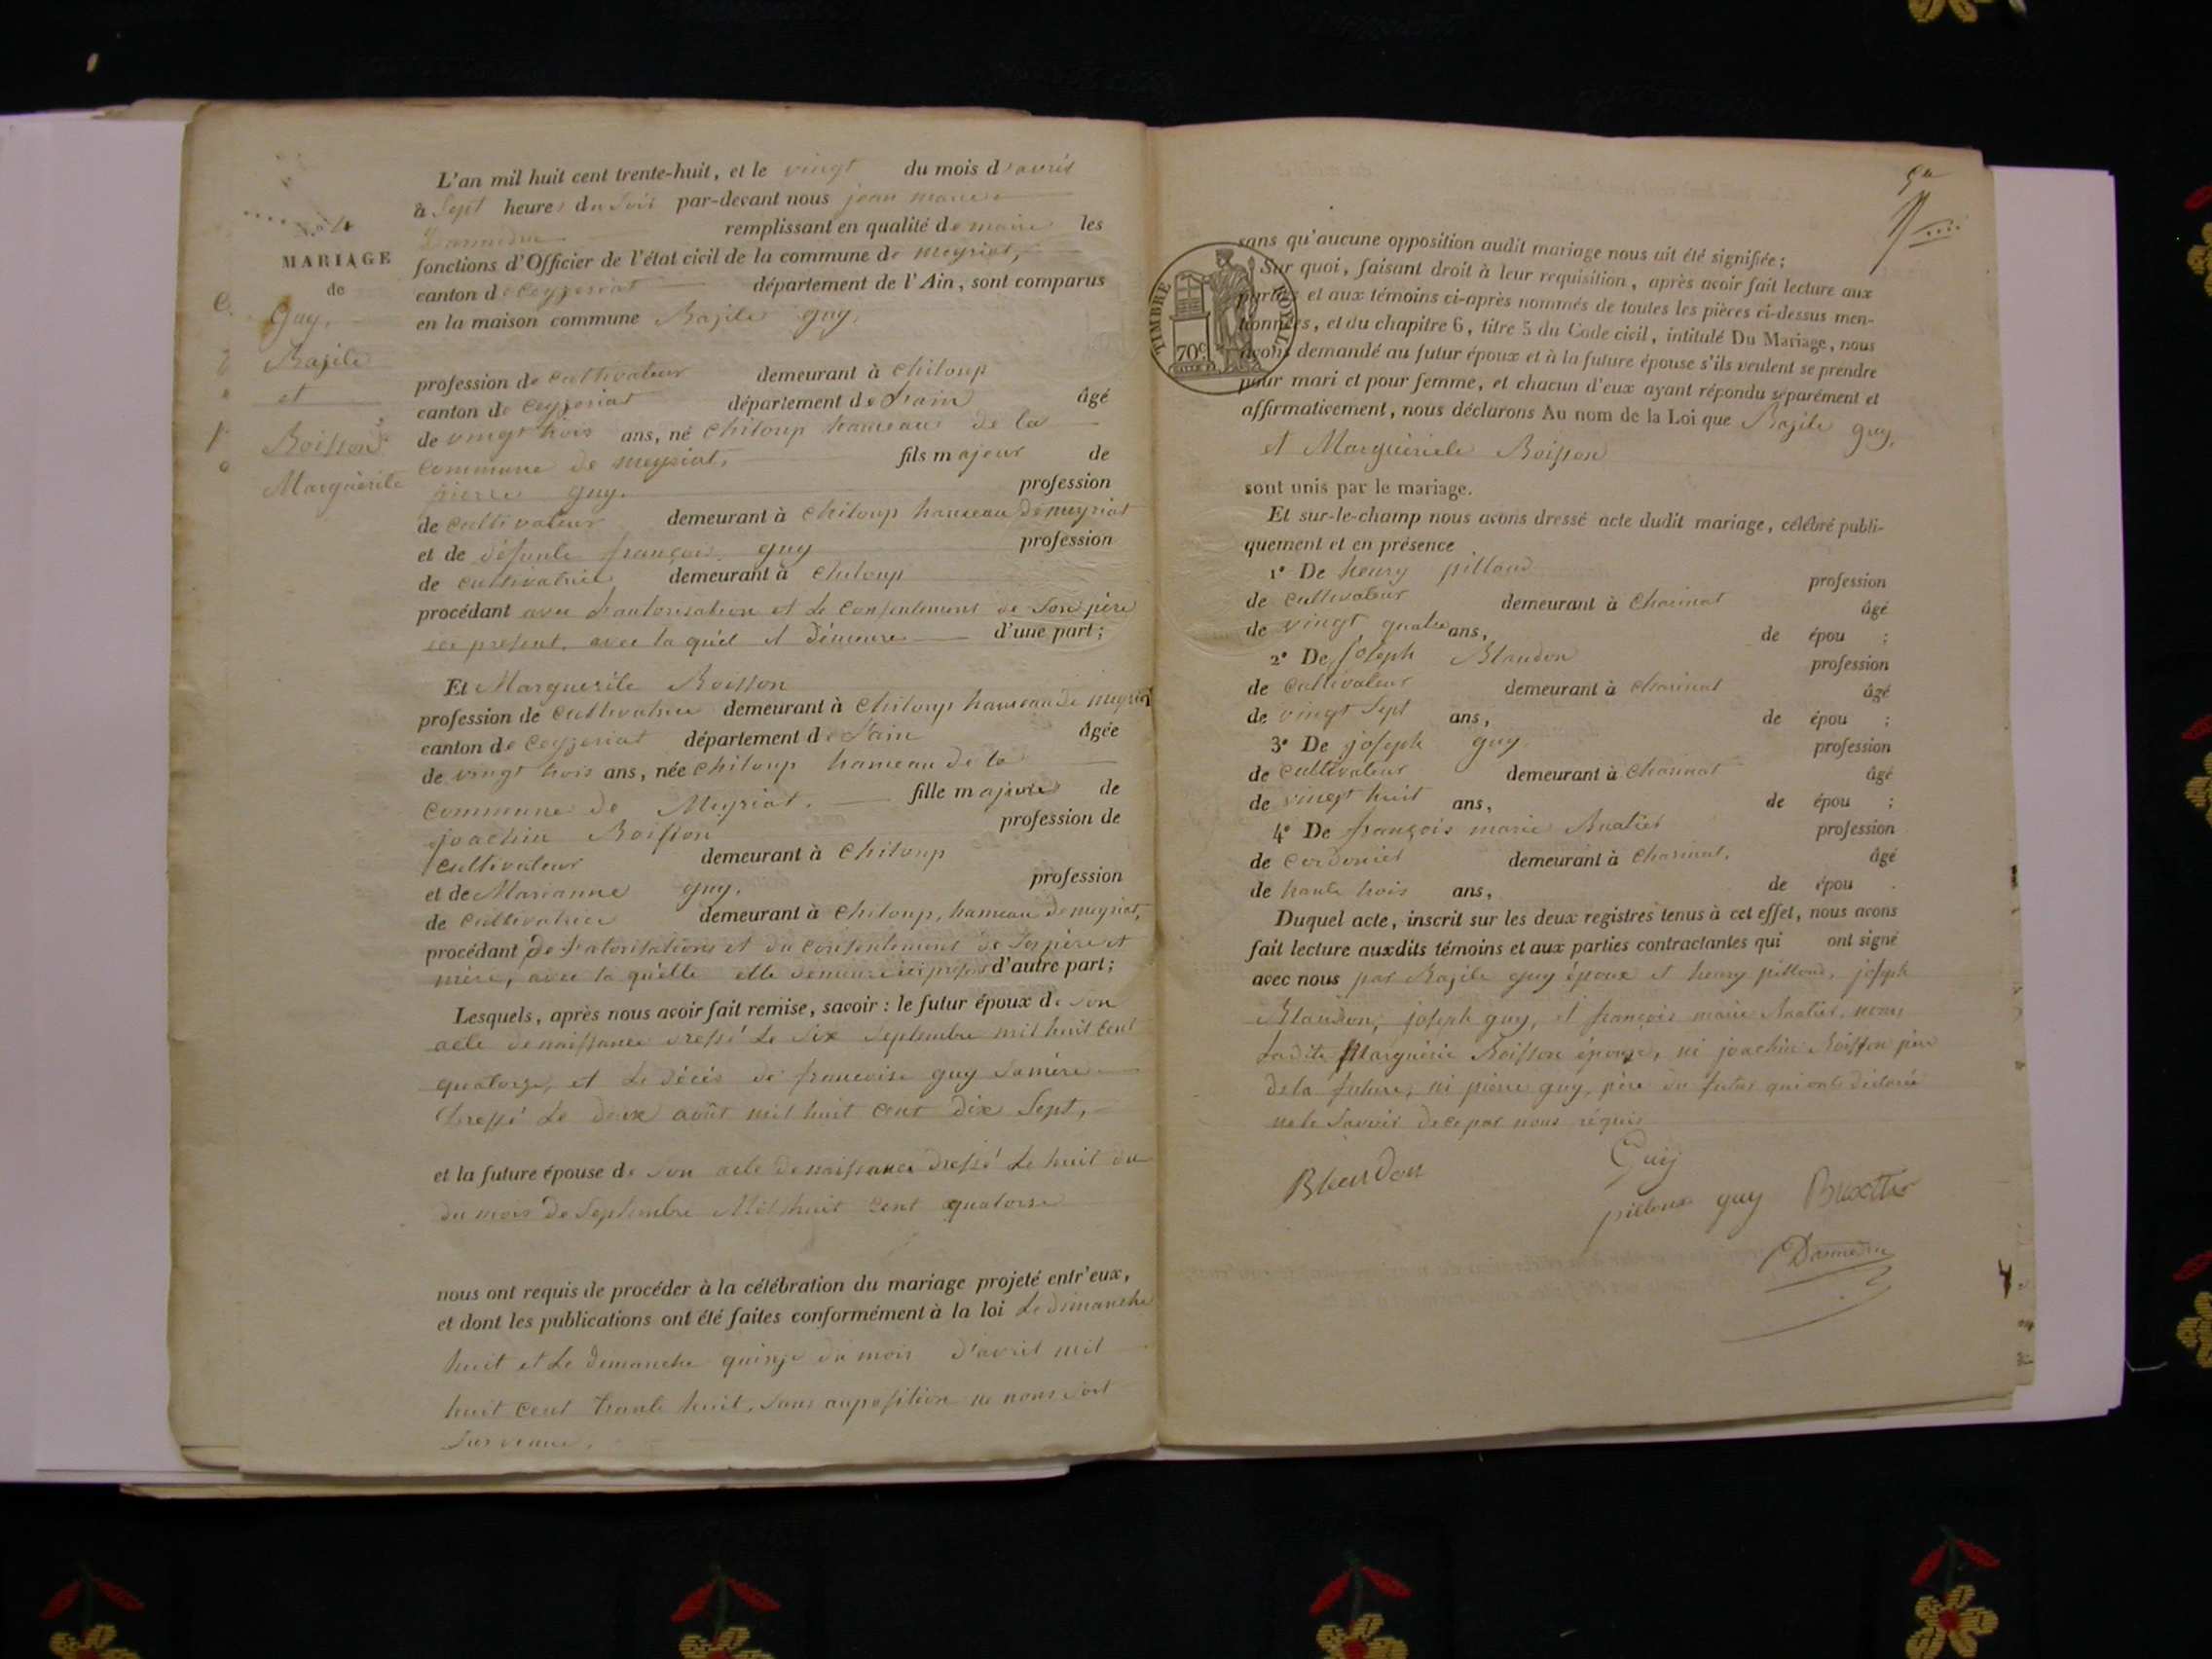 N.° 4
MARIAGE
de
Guy,
Bazile
et
Boisson
Marguerite
L'an mil huit cent trente-huit, et le vingt du mois d'avril
à sept heures du soir par-devant nous jean marie
remplissant en qualité de maire les
fonctions d'Officier de l'état civil de la commune de meyriat,
canton de Ceyzeriat département de l'Ain, sont comparus
en la maison commune Bazile guy,
profession de cultivateur demeurant à chiloup
canton de Ceyzeriat département de l'ain âgé
de vingt trois ans, né chiloup hameau de la
commune de meyriat, fils majeur de
pierre guy. profession
de cultivateur demeurant à chiloup hameau de meyriat
et de défunte françoise guy profession
de cultivatrice demeurant à chiloup
procédant avec l'autorisation et le consentement de son père
ici présent, avec la quel il demeure d'une part;
Et Marguerite Boisson
profession de cultivatrice demeurant à chiloup hameau de meyriat
canton de Ceyzeriat département de l'ain âgée
de vingt trois ans, née chiloup hameau de la
commune de Meyriat. fille majeure de
joachin Boisson profession de
cultivateur demeurant à chiloup
et de Marianne guy. profession
de cultivatrice demeurant à chiloup, hameau de meyriat,
procédant de l'atorisations et du consentement de ses père et
mère, avec la quelle elle demeure ici présent d'autre part;
Lesquels, après nous avoir fait remise, savoir : le futur époux de son
acte de naissance dressé le six septembre mil huit cent
quatorze, et le décés de francoise guy sa mère
dressé le deux août mil huit cent dix sept,
et la future épouse de son acte de naissance dressé le huit du
du mois de septembre Mil huit cent quatorse
nous ont requis de procéder à la célébration du mariage projeté entr'eux,
et dont les publications ont été faites conformément à la loi le dimanche
huit et le demanche quinze du mois d'avril mil
huit cent trante huit, sans auposition ne nous soit
survenue,
sans qu'aucune opposition audit mariage nous ait été signifiée;
Sur quoi, faisant droit à leur requisition, après avoir fait lecture aux
parties et aux témoins ci-après nommés de toutes les pièces ci-dessus men-
tionnées, et du chapitre 6, titre 5 du Code civil, intitulé Du Mariage, nous
avons demandé au futur époux et à la future épouse s'ils veulent se prendre
pour mari et pour femme, et chacun d'eux ayant répondu séparément et
affirmativement, nous déclarons Au nom de la Loi que Bazile guy,
et Marguerite Boisson
TIMBRE ROYAL
70c
sont unis par le mariage.
Et sur-le-champ nous avons dressé acte dudit mariage, célébré publi-
quement et en présence
1° De henry pilloud profession
de cultivateur demeurant à charinat âgé
de vingt quatre ans, de épou ;
2° De joseph Blaudon profession
de cultivateur demeurant à charinat âgé
de vingt sept ans, de épou ;
3° De joseph guy. profession
de cultivateur demeurant à charinat âgé
de vingt huit ans, de épou ;
4° De françois marie profession
de cordonier demeurant à charinat. âgé
de trante trois ans, de épou .
Duquel acte, inscrit sur les deux registres tenus à cet effet, nous avons
fait lecture auxdits témoins et aux parties contractantes qui ont signé
avec nous par Bazile guy époux et henry pilloud, joseph
Blaudon, joseph guy, et françois marie nom
ladite Marguerie Boisson épouse, ni joachin Boisson père
de la future, ni pierre guy, père du futur qui ont déclaré
ne le savoir de ce par nous réquis
Blaudon
Guy
pilloud guy